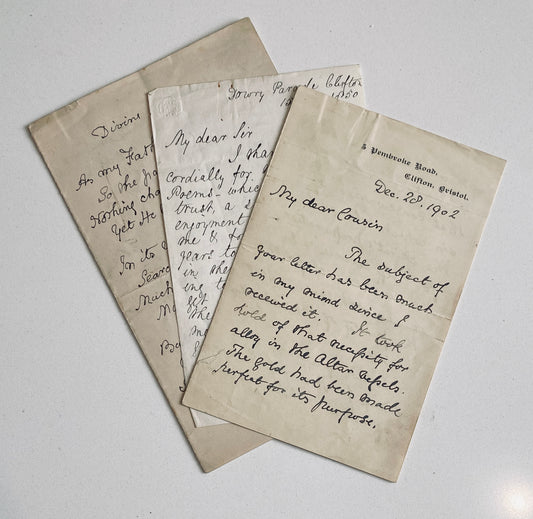 Divine
As my Fath
So the
Nothing cha
Yet He
In its
Sear
Much
M
B
Dowry Parade Clifton
1850
My dear Sir
I than
cordially for
Poems - which
trust, a s
enjoyment
me & f
years to
in the
ing t
get
the
m
5 Pembroke Road,
Clifton, Bristol.
Dec. 28. 1902
My dear Cousin
The subject of
your letter has been much
in my mind since I
received it. It took
hold of that necessity for
alloy in the Altar Vessels.
The gold had been made
perfect for its purpose.